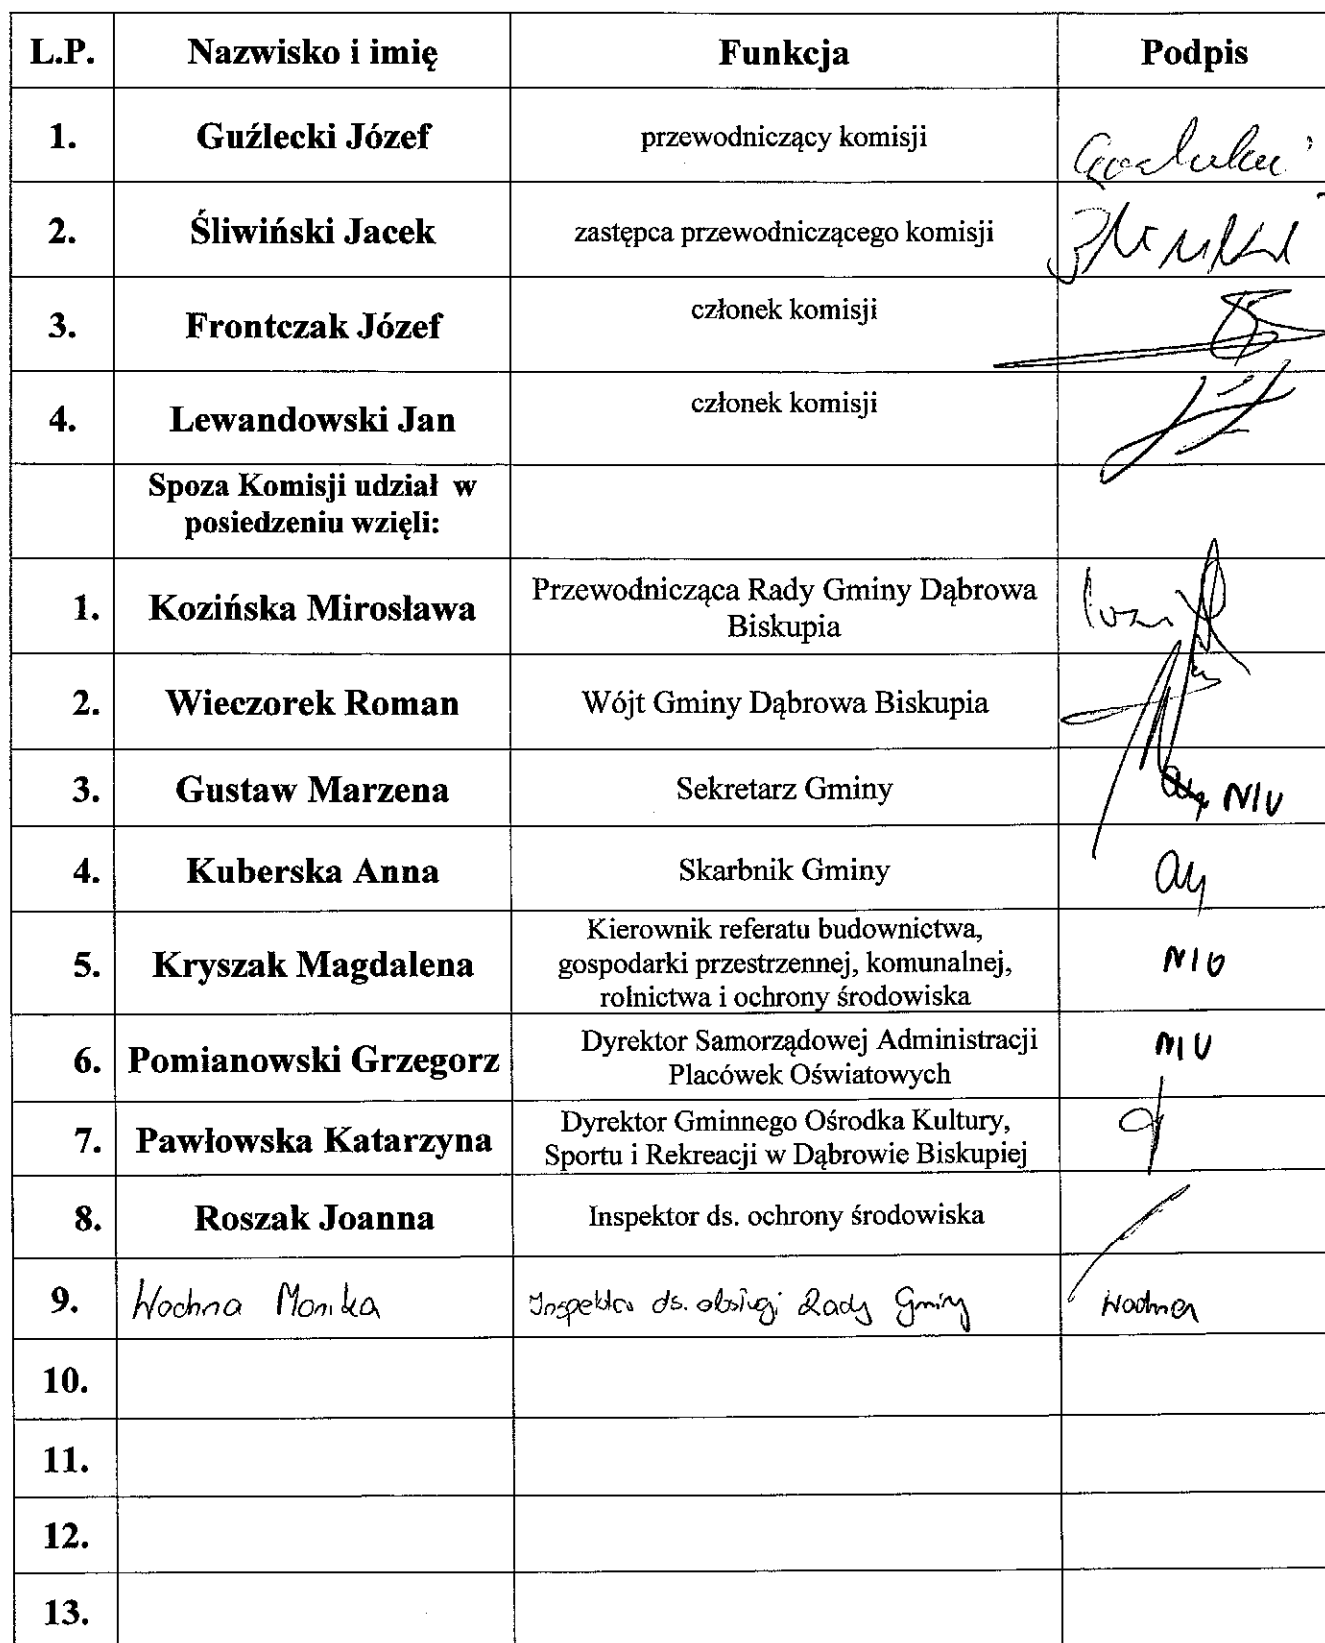 L.P. Nazwisko i imię Funkcja Podpis
1. Guźlecki Józef przewodniczący komisji
2. Śliwiński Jacek zastępca przewodniczącego komisji
3. Frontczak Józef członek komisji
4. Lewandowski Jan członek komisji
Spoza Komisji udział w
posiedzeniu wzięli:
1. Kozińska Mirosława Przewodnicząca Rady Gminy Dąbrowa
Biskupia
2. Wieczorek Roman Wójt Gminy Dąbrowa Biskupia
3. Gustaw Marzena Sekretarz Gminy N/U
4. Kuberska Anna Skarbnik Gminy
Kierownik referatu budownictwa,
5. Kryszak Magdalena gospodarki przestrzennej, komunalnej, N/U
rolnictwa i ochrony środowiska
6. Pomianowski Grzegorz Dyrektor Samorządowej Administracji N/U
Placówek Oświatowych
7. Pawłowska Katarzyna Dyrektor Gminnego Ośrodka Kultury,
Sportu i Rekreacji w Dąbrowie Biskupiej
8. Roszak Joanna Inspektor ds. ochrony środowiska
9. Wochna Monika Inspektor ds. obsługi Rady Gminy Wochna
10.
11.
12.
13.